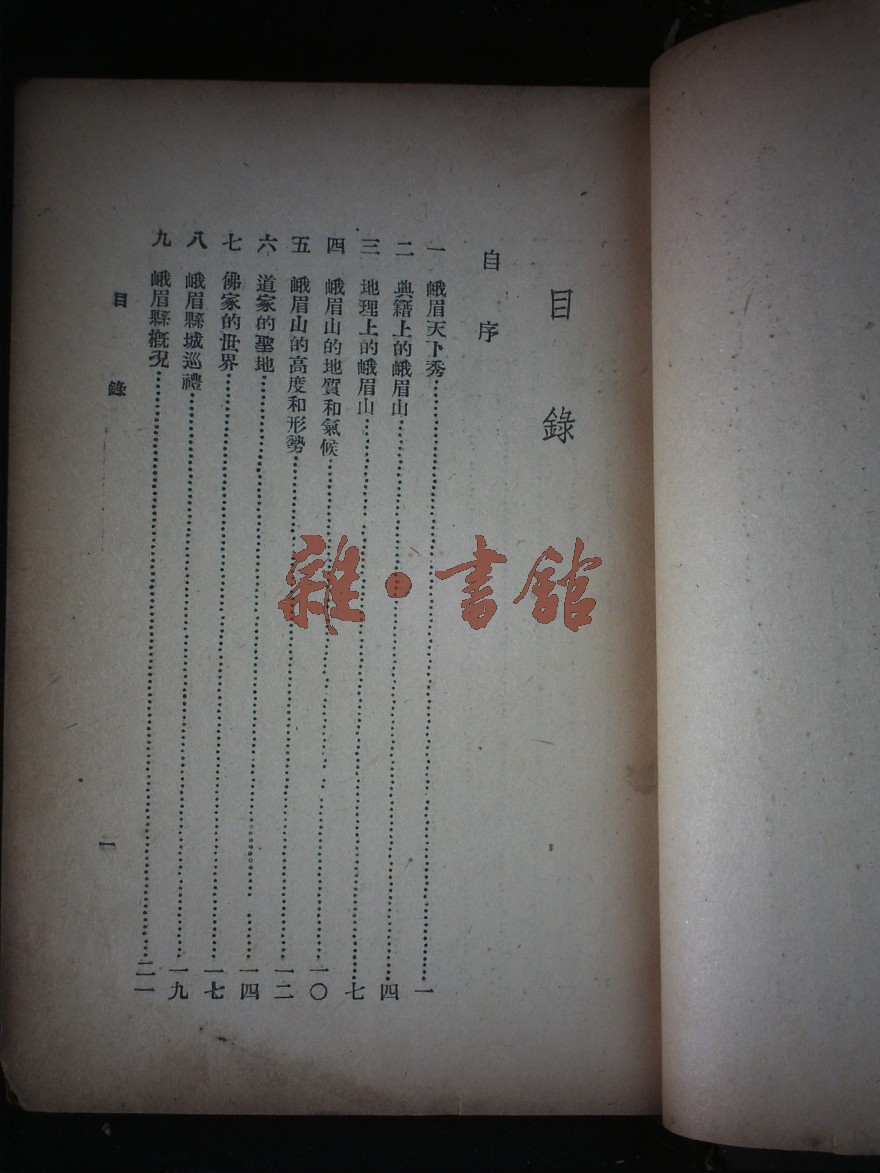 目錄
自序
一 峨眉天下秀…………一
二 典籍上的峨眉山…………四
三 地理上的峨眉山…………七
四 峨眉山的地質和氣候…………一〇
五 峨眉山的高度和形勢…………一二
六 道家的聖地…………一四
七 佛家的世界…………一七
八 峨眉縣城巡禮…………一九
九 峨眉縣概況…………二一
目錄
一
雜·書館